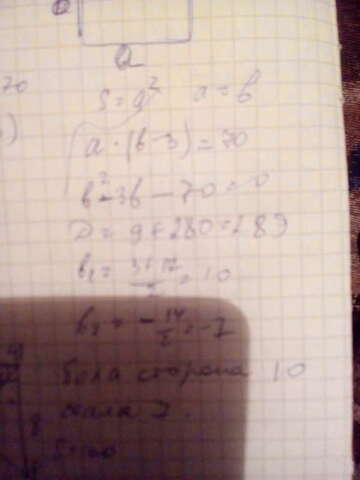 a
70
S = a² a = b
a · (b - 3) = 70
b² - 3b - 70 = 0
D = 9 + 280 = 289
b₁ = (3+17)/2 = 10
b₂ = -14/2 = -7
сторона 10
7.